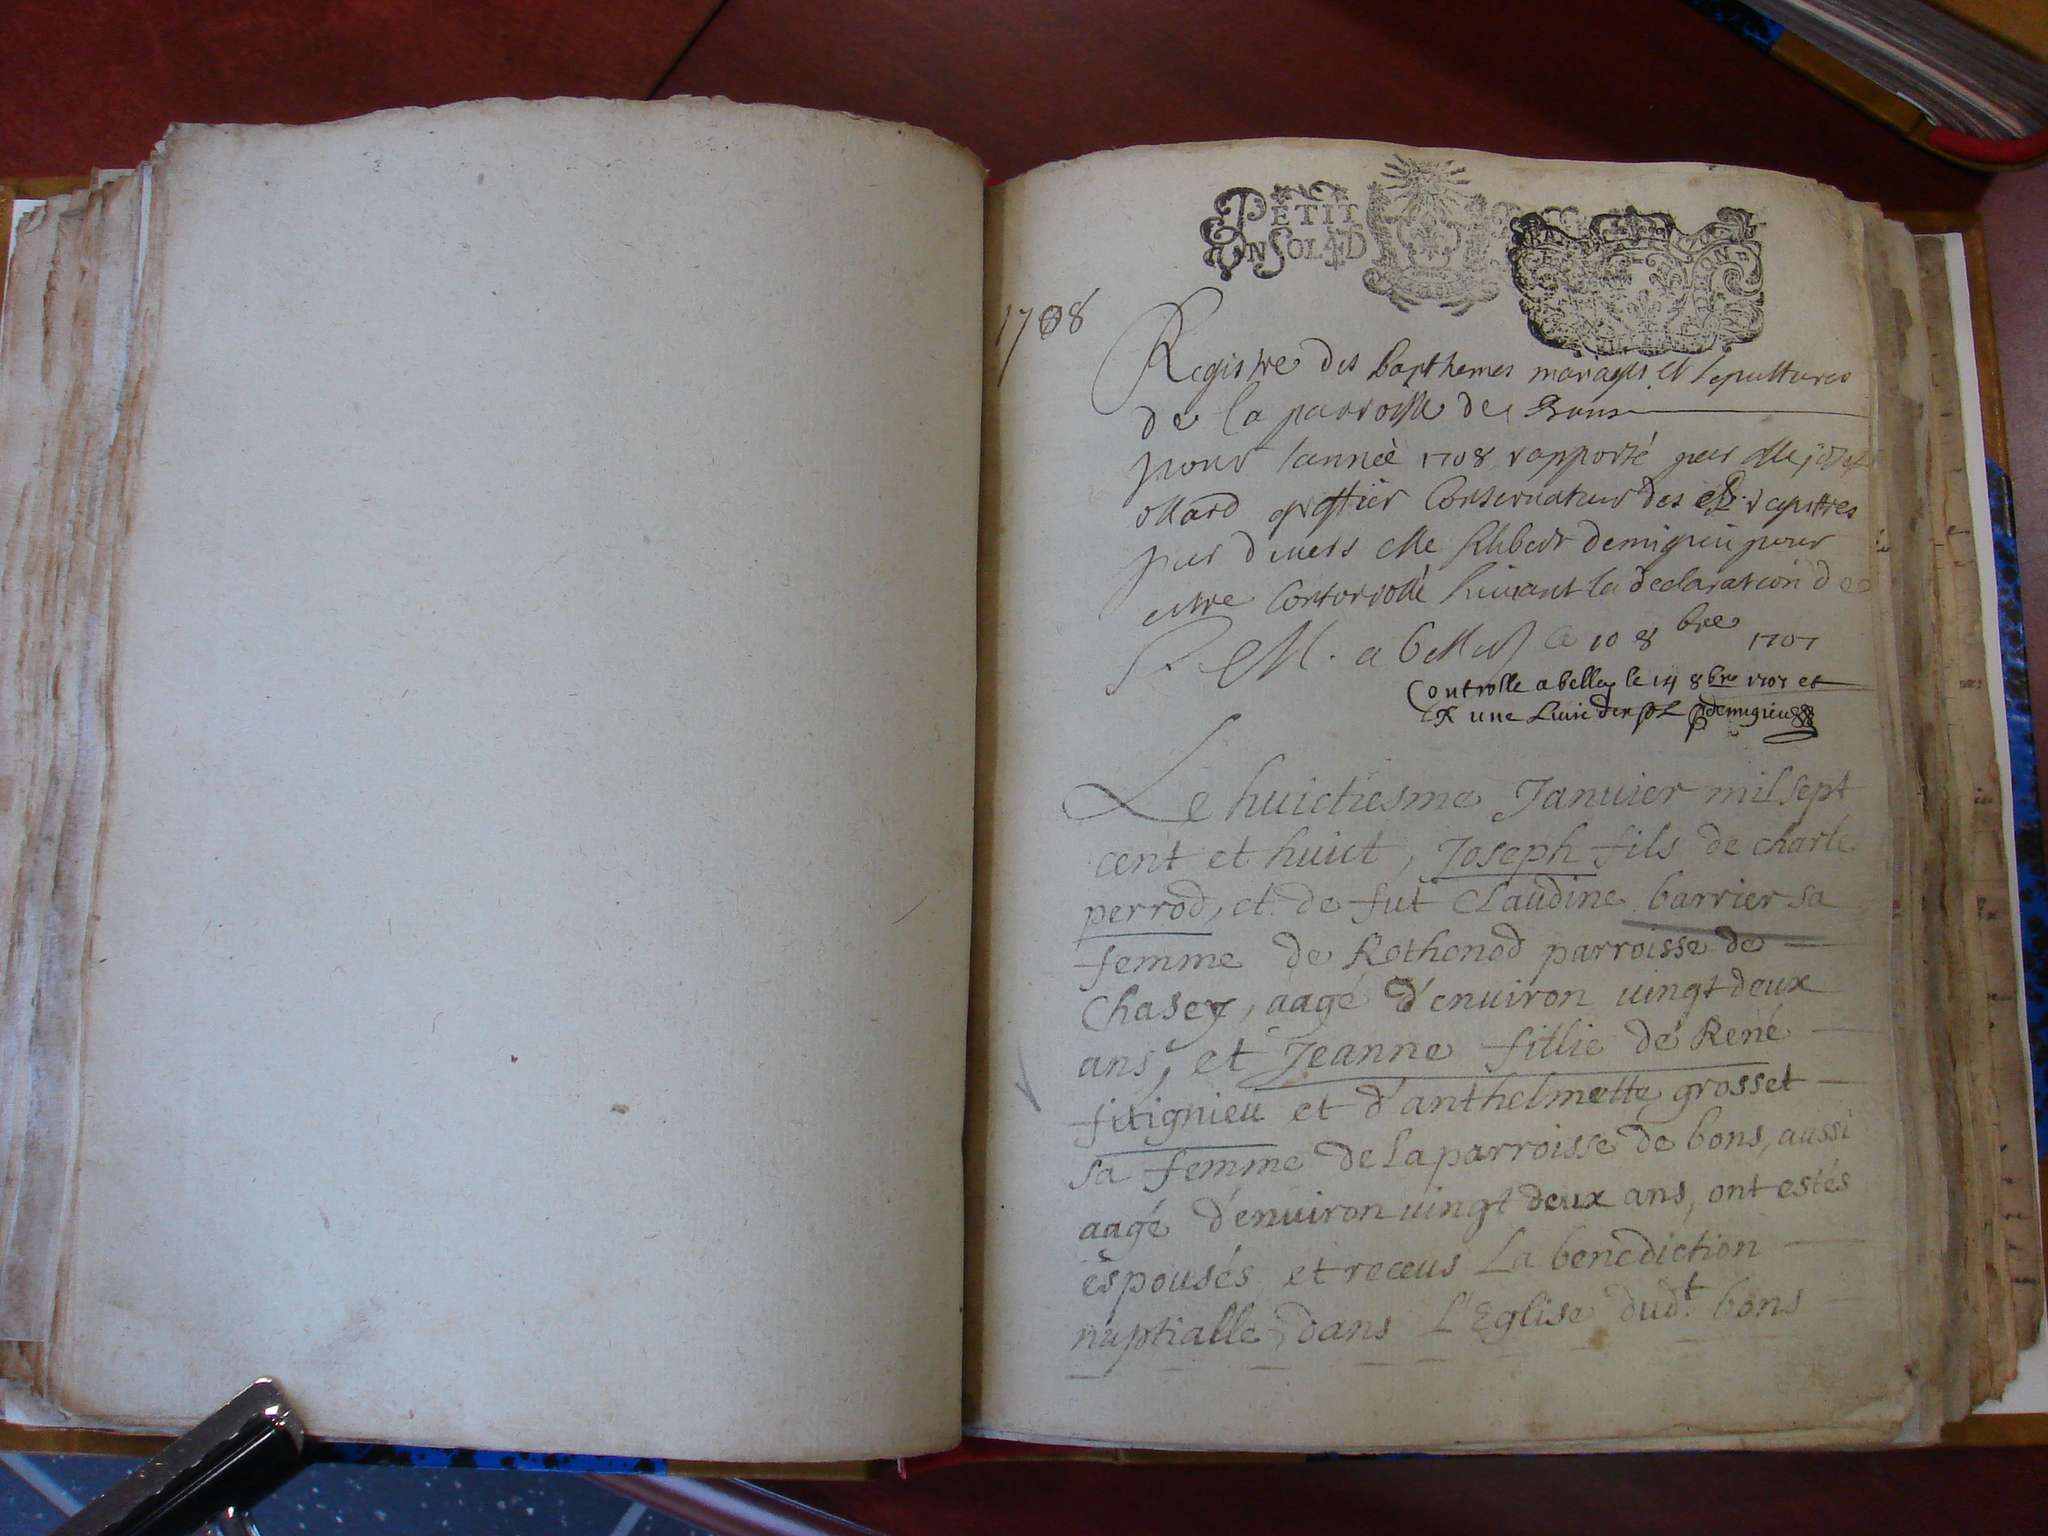 PETIT
UN SOL 4 D
1708
Registre des bapthemes mariages et sepultures
de la parroisse de Bons
pour lannée 1708 rapporté par Me josep
greffier Conservateur des registres
par devers Me demigieu pour
estre Controrollé suivant la declaration de
S. M. a belley le 10 8bre 1707
Controlle a belley le 14 8bre 1707 et
une Livre demigieu
Le huictiesme Januier mil sept
cent et huict, Joseph fils de charle
perrod, et de fut Claudine barrier sa
femme de Rothonod parroisse de
Chasey, aagé d'enuiron uingt deux
ans, et Jeanne fillie de René
fitignieu et d'anthelmette grosset
sa femme de la parroisse de bons, aussi
aagé d'enuiron uingt deux ans, ont estés
espousés et receus La benediction
nuptialle, dans L'Eglise dudt bons